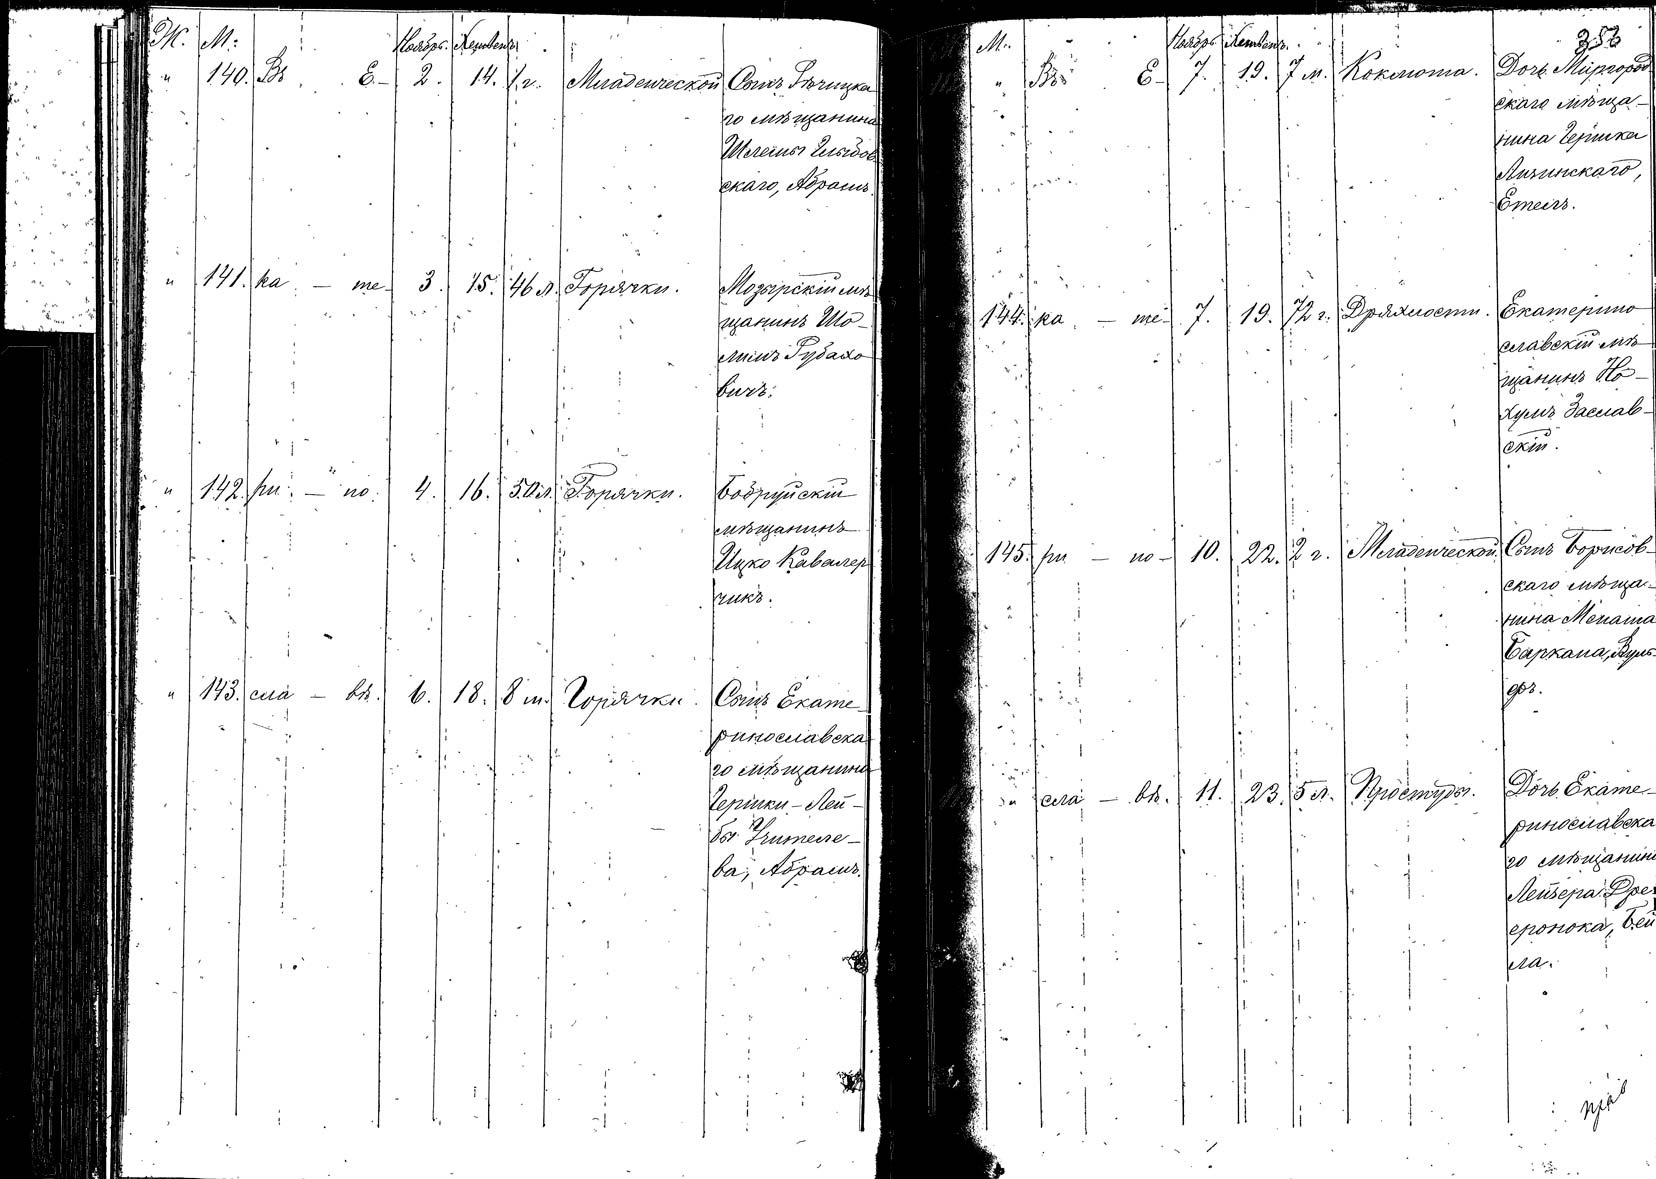 Ж. М: Ноябрь. Хешвенъ.
" 140. Въ Е- 2. 14. 1 г. Младенческой Сынъ Рѣчицка
го мѣщанина
Шлемы
скаго, Абрамъ.
" 141. ка - те- 3. 15. 46 л. Горячки. Мозырскій мѣ
щанинъ Шо-
лимъ Рубахо
вичъ.
" 142. ри - но. 4. 16. 50 л. Горячки. Бобруйскій
мѣщанинъ
Ицко Кавалер
чикъ.
" 143. сла - вѣ. 6. 18. 8 м. Горячки. Сынъ Екате-
ринославска
го мѣщанина
Гершки-Лей-
бы Учителе-
ва, Абрамъ.
М. Ноябрь Хешвенъ. 353
" Въ Е- 7. 19. 7 м. Коклюша. Дочь Миргород
скаго мѣща-
нина Гершка
Етель.
144. ка - те- 7. 19. 72 г. Дряхлости. Екатерино
славскій мѣ
щанинъ Но-
хумъ Заслав-
скій.
145. ри - но- 10. 22. 2 г. Младенческой. Сынъ Борисов-
скаго мѣща-
нина
Баркана, Вуль-
фъ.
" сла - вѣ. 11. 23. 5 л. Простуды. Дочь Екате-
ринославска
го мѣщанина
Лейзера
Бей
ла.